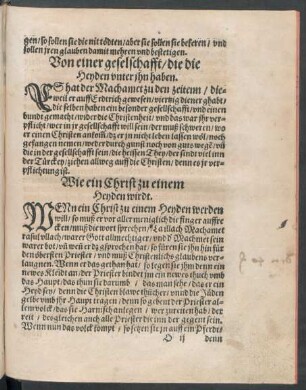 gen/ so sollen sie die nit tödten/ aber sie sollen sie bekeren/ vnd
sollen jren glauben damit mehren vnd bestetigen.
Von einer geselschafft/ die die
Heyden vnter jhn haben.
ES hat der Machamet zu den zeitenn/ die-
weil er auff Erdtrich gewesen/ viertzig diener ghabt/
die selben haben ein besonder geselschafft/ vnd einen
bundt gemacht/ wider die Christenheit/ vnd das war jhr ver-
pflicht/ wer in jr geselschafft will sein/ der muß schweren/ wo
er einen Christen antrifft/ dz er jn nicht leben lassen wöl/ noch
gefangen nemen/ weder durch gunst noch von guts wegẽ/ vñ
die in der geselschafft sein/ die heissen They/ der sindt viel inn
der Türckey/ ziehen allweg auff die Christen/ denn es jr ver-
pflichtung ist.
Wie ein Christ zu einem
Heyden wirdt.
WEnn ein Christ zu einem Heyden werden
will/ so muß er vor aller meniglich die finger auffre
cken/ muß die wort sprechen/ La illach Machamet
rasul ollach/ warer Got allmechtiger/ vnd Machmet sein
warer bot/ vñ wann er dz gesprochen hat/ so füren sie jhn hin für
den obersten Priester/ vnd muß Christenlichs glaubens ver-
laugnen. Wenn er das gethan hat/ so legen sie jhm denn ein
newes Kleidt an/ der Priester bindet jm ein neuw tuch vmb
das Haupt/ das thun sie darumb/ das man sehe/ das er ein
Heyd sey/ denn die Christen blawe thücher/ vnnd die Jüden
gelbe vmb jhr Haupt tragen/ denn so gebeut der Priester al-
lem volck/ das sie Harnisch anlegen/ wer zu reiten hab/ der
reit/ desgleichen auch alle Priester die inn der gegent sein.
Wenn nun das volck kompt/ so setzen sie jn auff ein Pferdt/
O ij denn